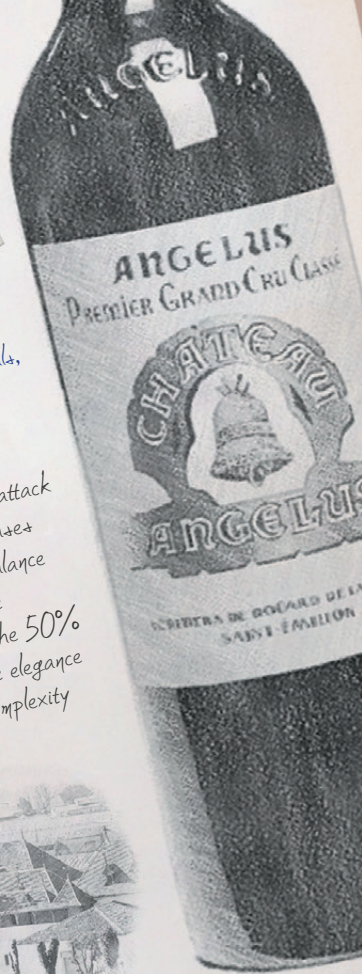 ANGELUS
ANGELUS
PREMIER GRAND CRU CLASSÉ
CHÂTEAU
ANGELUS
SAINT-ÉMILION
attack
lance
he 50%
elegance
mplexity